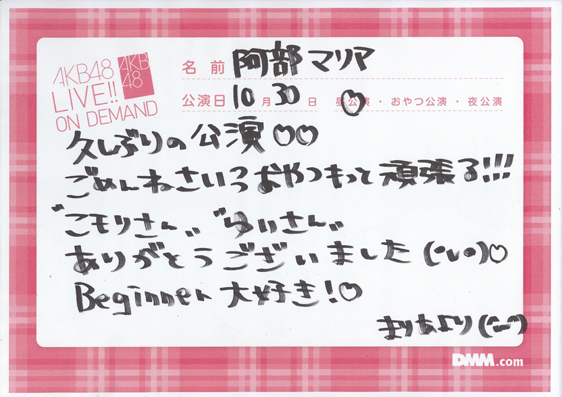 AKB48
LIVE!!
ON DEMAND
AKB
48
名前 阿部マリア
公演日 10月30日 昼公演・おやつ公演・夜公演
久しぶりの公演♡♡
ごめんねさいつおやつもって頑張る!!!
"こもりさん" "ゆいさん"
ありがとうございました(^o^)♡
Beginner 大好き!♡
まりあより(^-^)
DMM.com